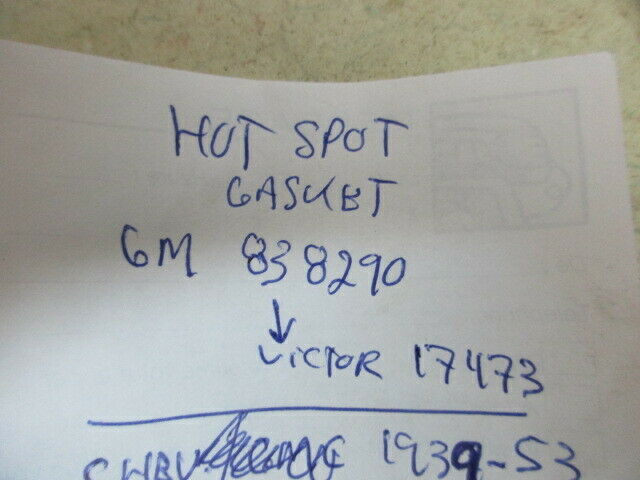 HOT SPOT
GASKET
GM 838290
↓
VICTOR 17473
CHEV 1939-53